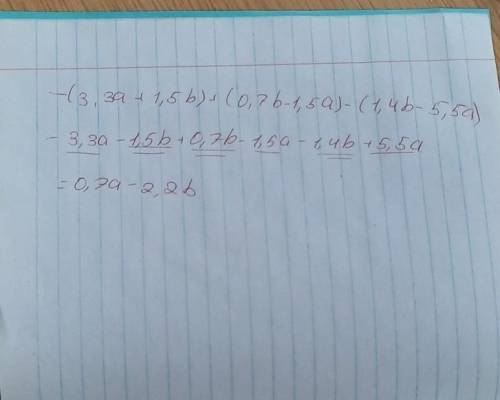 -(3,3a + 1,5b) + (0,7b-1,5a) - (1,4b - 5,5a)
- 3,3a - 1,5b + 0,7b - 1,5a - 1,4b + 5,5a
= 0,7a - 2,2b